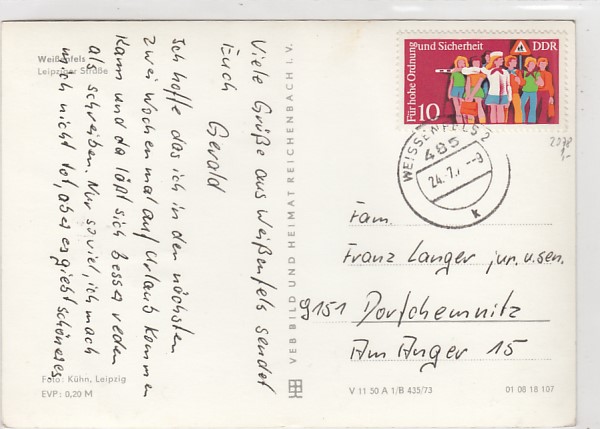 Weißenfels
Leipziger Straße
Viele Grüße aus Weißenfels sendet
Euch Gerald
Ich hoffe das ich in den nächsten
zwei Wochen mal auf Urlaub kommen
kann und da läßt sich besser reden
als schreiben. Nur so viel ich mach
mich nicht tot, aber es giebt schöneres
Foto: Kühn, Leipzig
EVP: 0,20 M
VEB BILD UND HEIMAT REICHENBACH i. V.
Für hohe Ordnung und Sicherheit
DDR
10
WEISSENFELS 2
485
24.7. -9
k
2078
1,-
Fam.
Franz Langer jun. u. sen.
9151 Dorfchemnitz
Am Anger 15
V 11 50 A 1/B 435/73
01 06 18 107